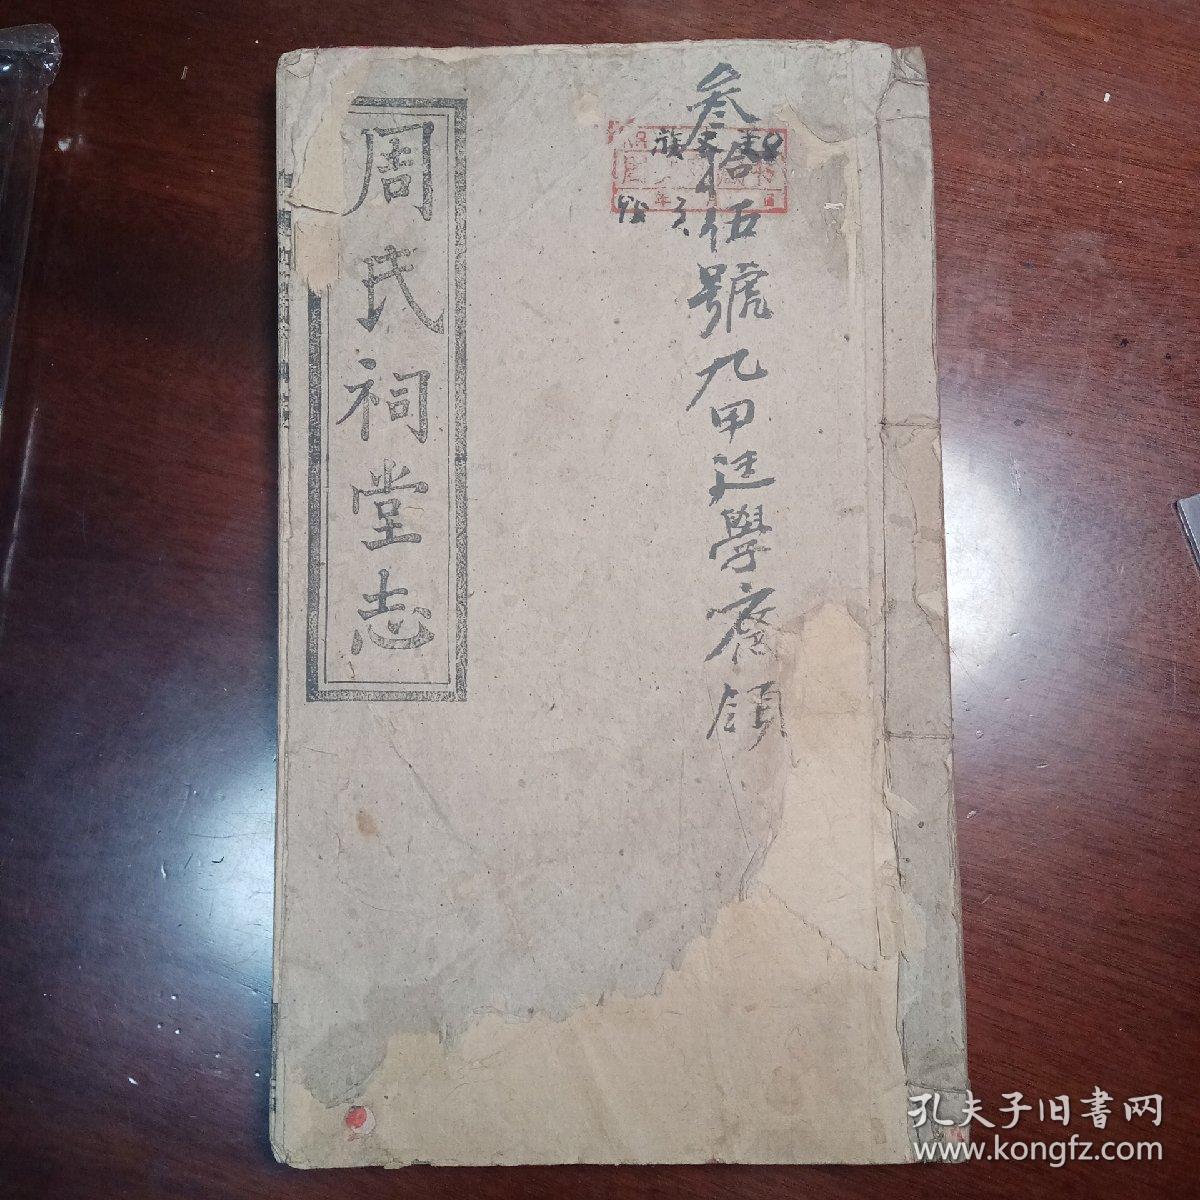 叁拾伍號九甲廷學齋領
周氏祠堂志
孔夫子旧書网
www.kongfz.com